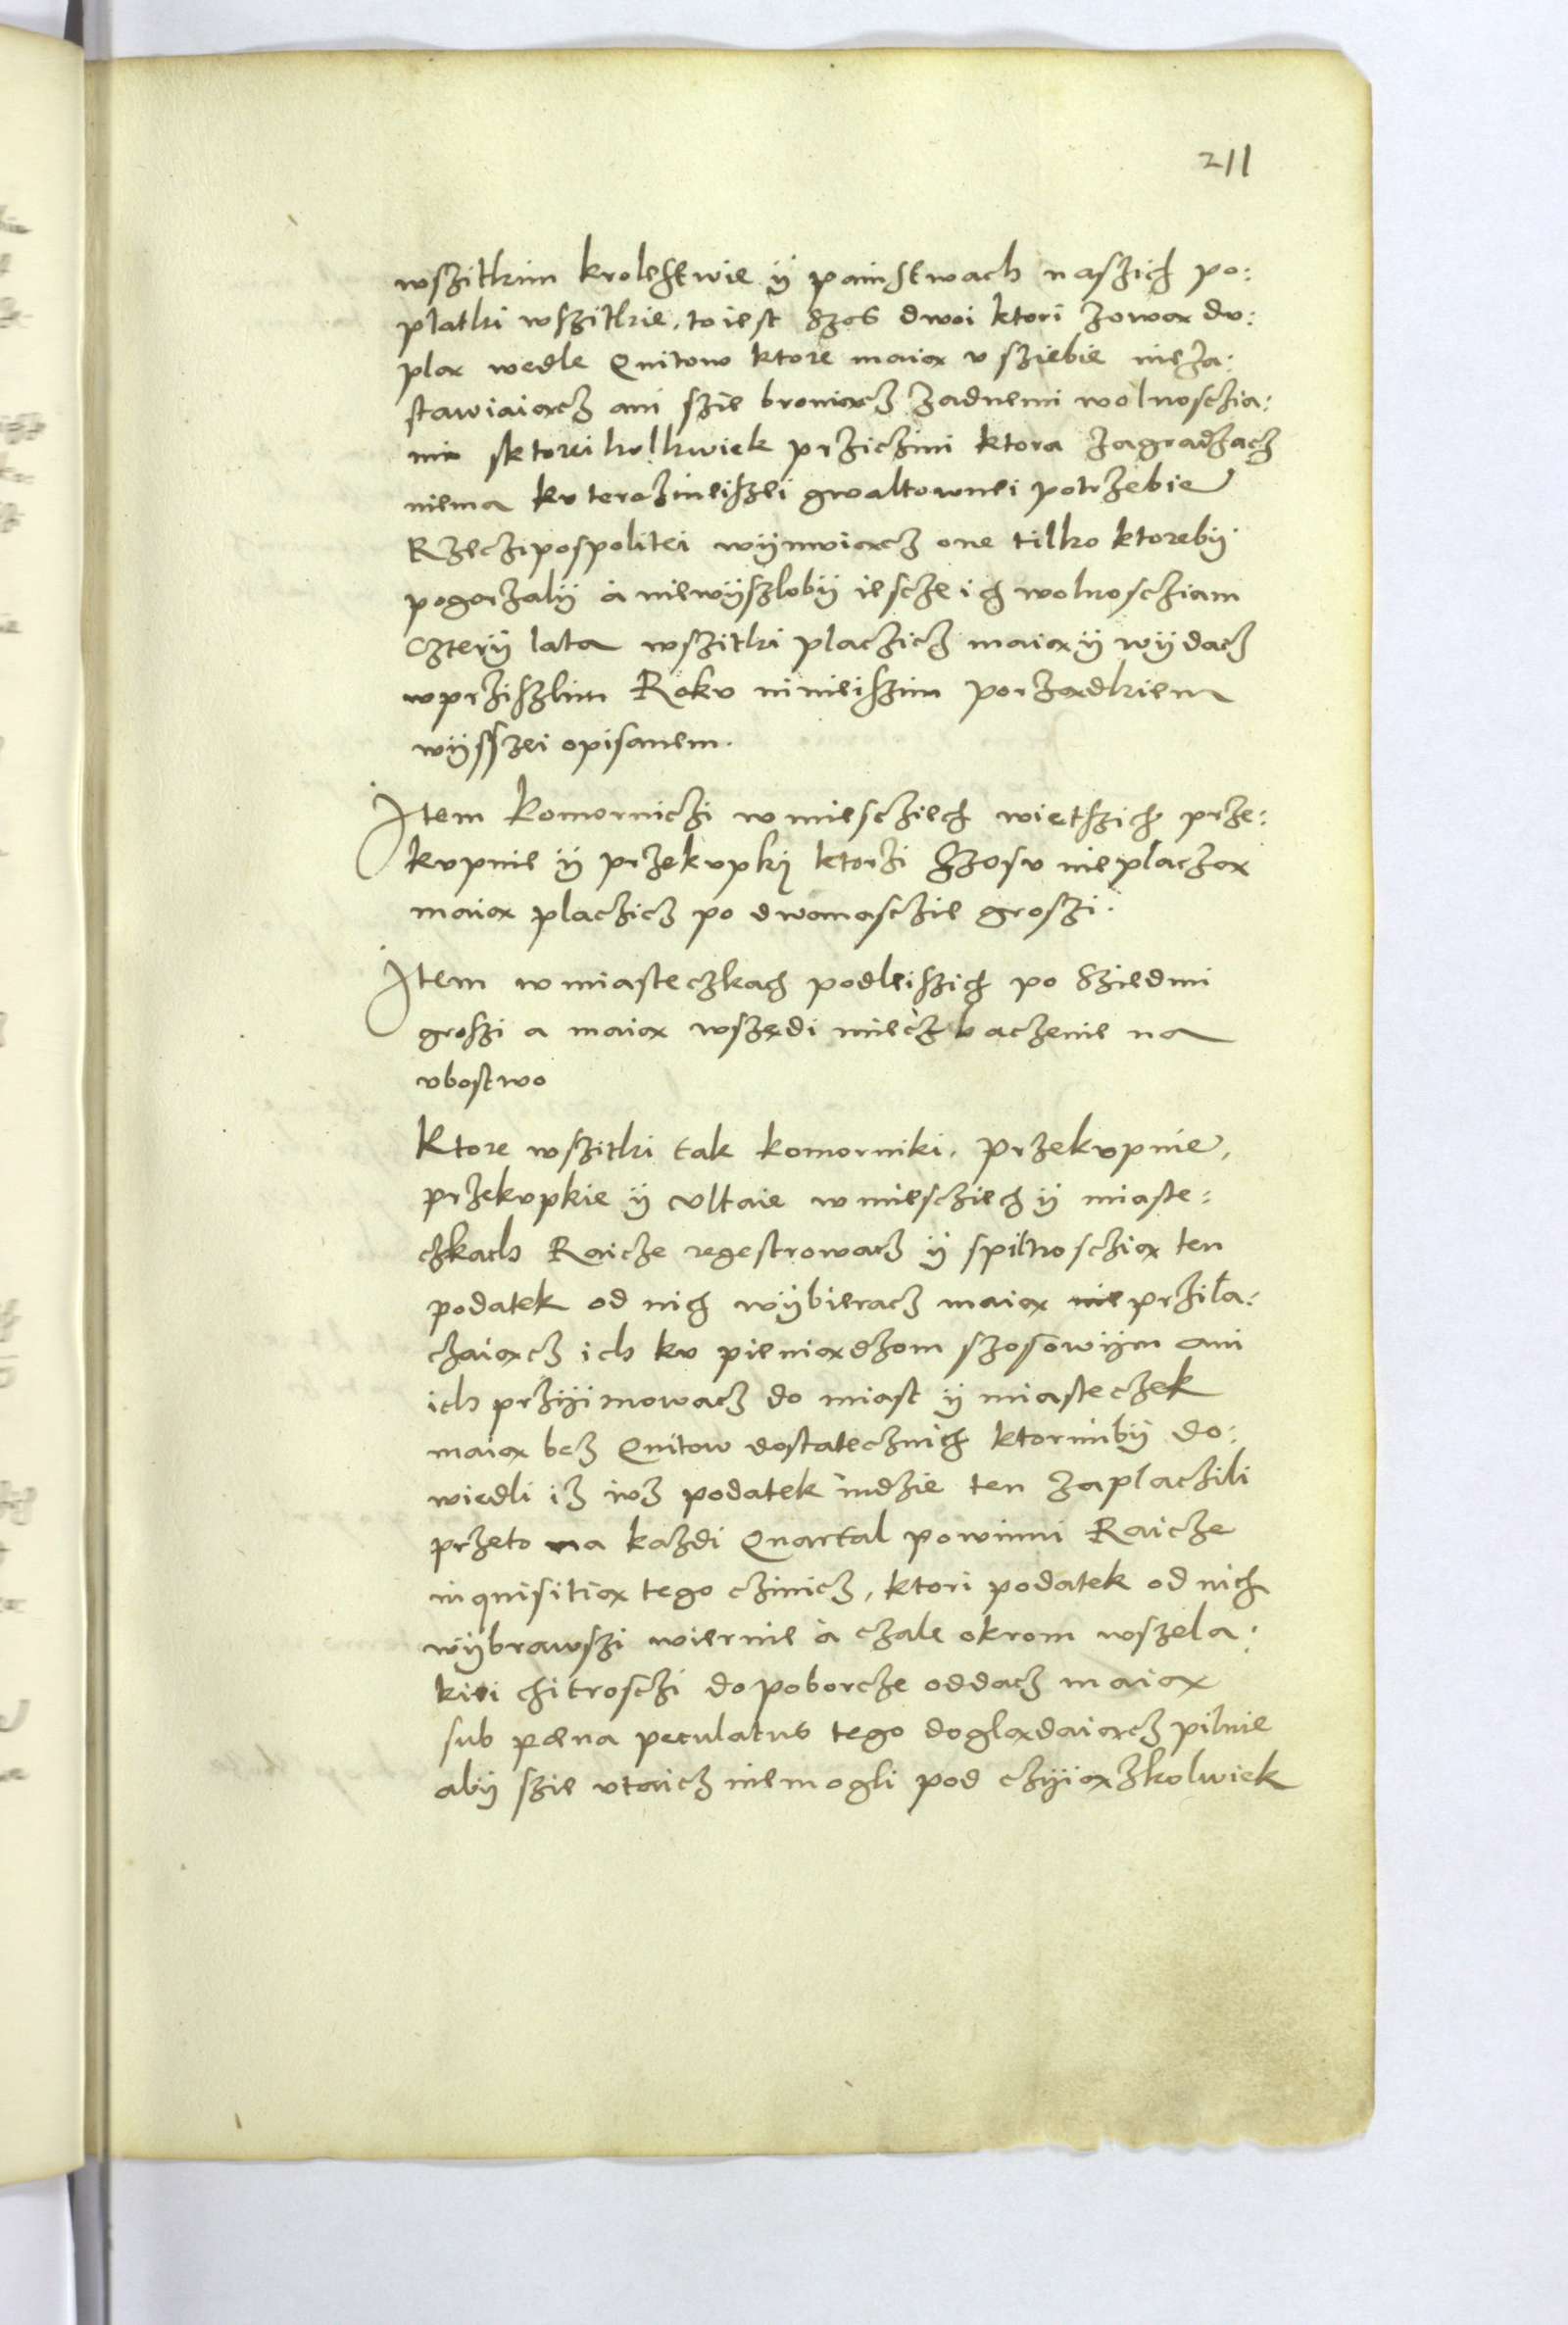 211
wszitkim krolestwie ÿ painstwach naszich po:
platki wszitkie, to iest Szos dwoi ktori zowąx du:
plax wedle Quitow ktore maiax v sziebie nieza:
stawiaiaxcz ani szie broniaxcz zadnemi wolnoschia:
mi sktoreikolkwiek prziczini ktora zagradzacz
niema kv terazneiszei gwaltownei potrzebie
Rzeczipospolitei wÿnwiaxcz one tilko ktorebÿ
pogorzalÿ à niewÿszlobÿ iescze ich wolnosciziam
Czterÿ lata wszitki placzicz maiax ÿ wÿdacz
wprziszlim Rokv ninieiszim porzaxdkiem
wÿsszei opisanem.
Item komorniczi w miescziech wietszich prze:
kvpnie ÿ przekvpkÿ ktorzi Szosv nie placzax
maiax placzicz po dwanasczie groszi.
Item w miasteczkach podleiszich po Sziedmi
groszi a maiax wszędi miecz baczenie na
vbostwo
Ktore wszitki tak komorniki, przekvpnie,
przekvpkie ÿ vltaie w miescziech ÿ miaste:
czkach Raicze regestrowacz ÿ spilnosciziax ten
podatek od nich wÿbieracz maiax nie przila:
czaiaxcz ich kv pieniaxdzom szosowÿm ani
ich przÿimowacz do miast ÿ miasteczek
maiax bez Quitow dostatecznich ktorimibÿ do:
wiedli iz ivz podatek indzie ten zaplaczili
przeto na kazdi Quartal powinni Raicze
inquisitiax tego czinicz, ktori podatek od nich
wÿbrawszi wiernie à czale okrom wszela:
kiei chitroschi do poborcze oddacz maiax
sub pæna peculatus tego doglaxdaiaxcz pilnie
abÿ szie vtaicz niemogli pod czÿiaxzkolwiek